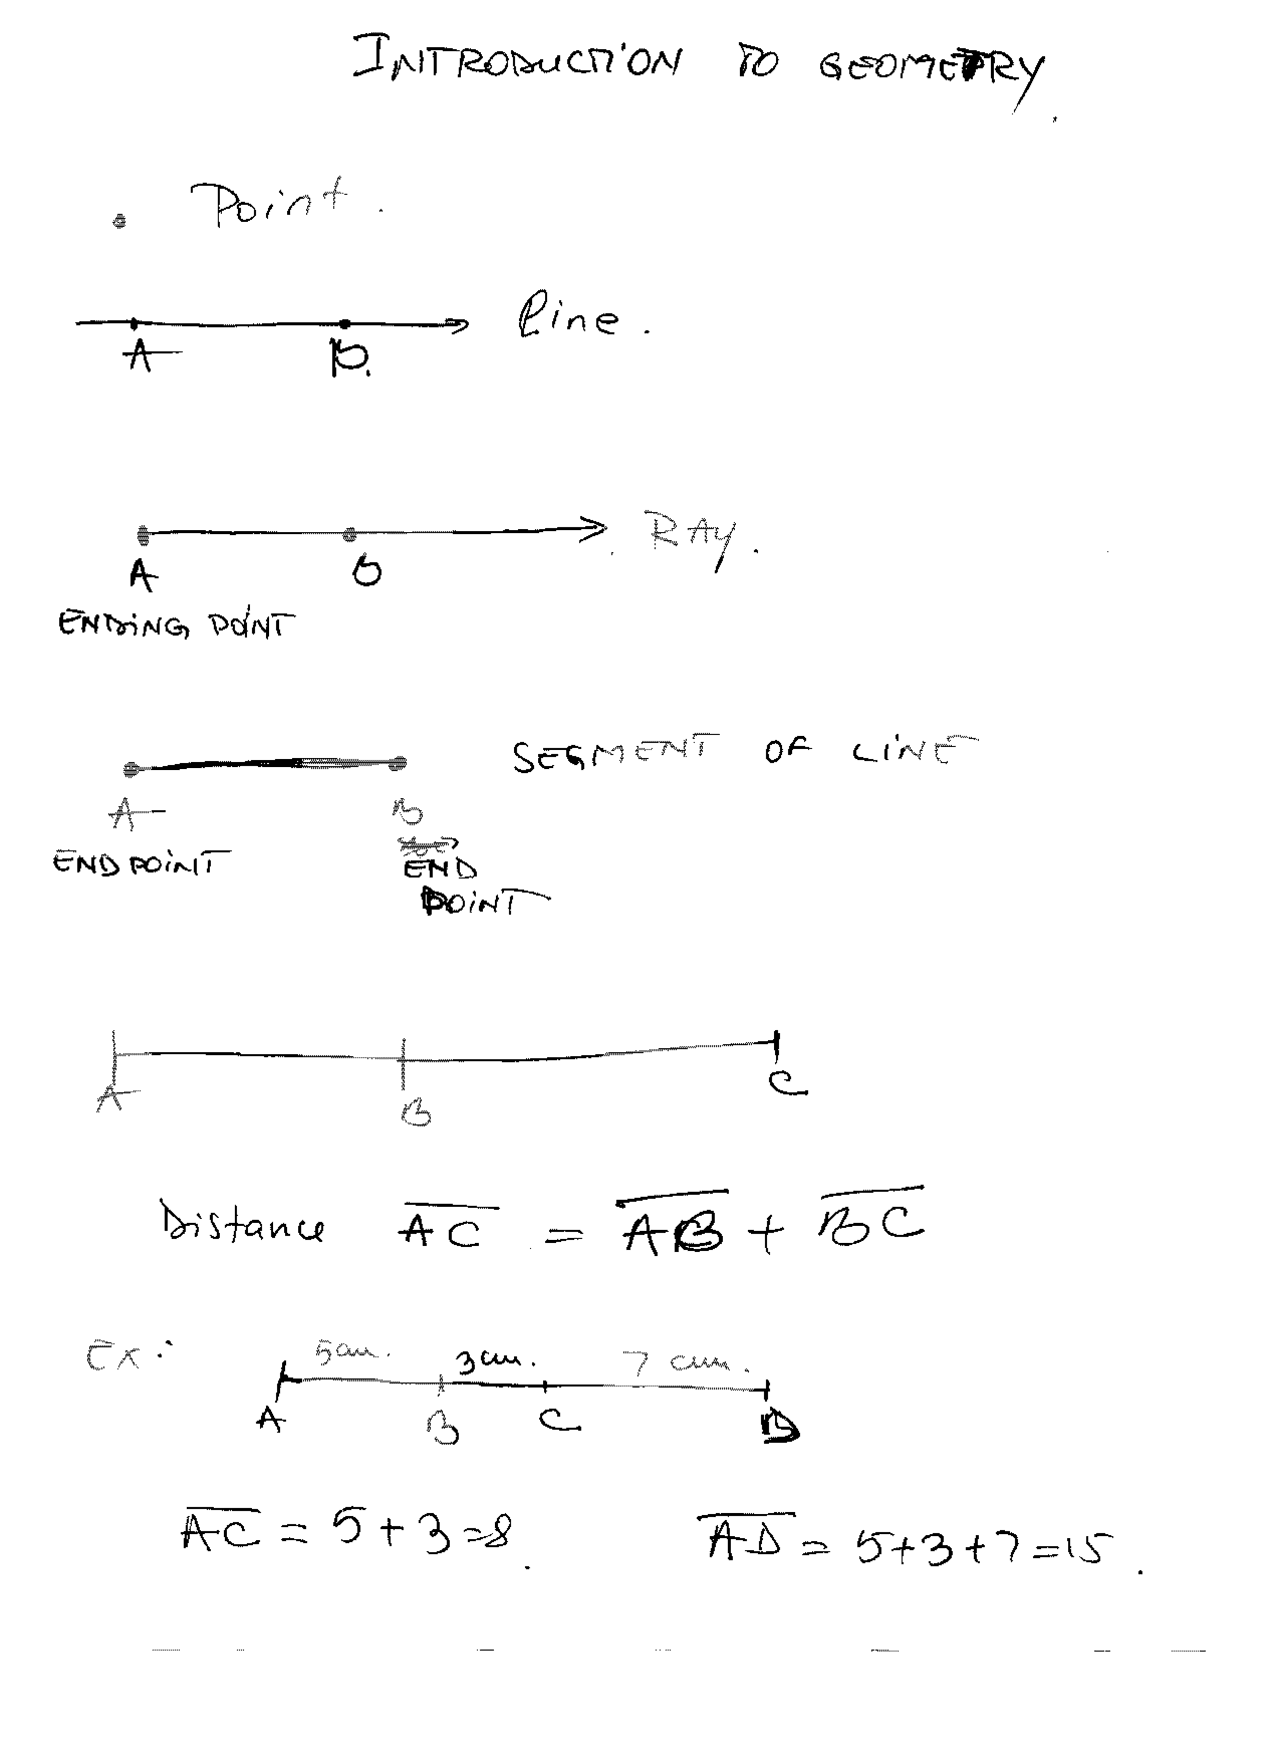 INTRODUCTION TO GEOMETRY.
Point.
line.
A B.
RAY.
A B
ENDING POINT
SEGMENT OF LINE
A B
ENDPOINT END
POINT
A B C
Distance AC = AB + BC
Ex: 5cm. 3cm. 7 cm.
A B C D
AC = 5+3=8. AD = 5+3+7=15.